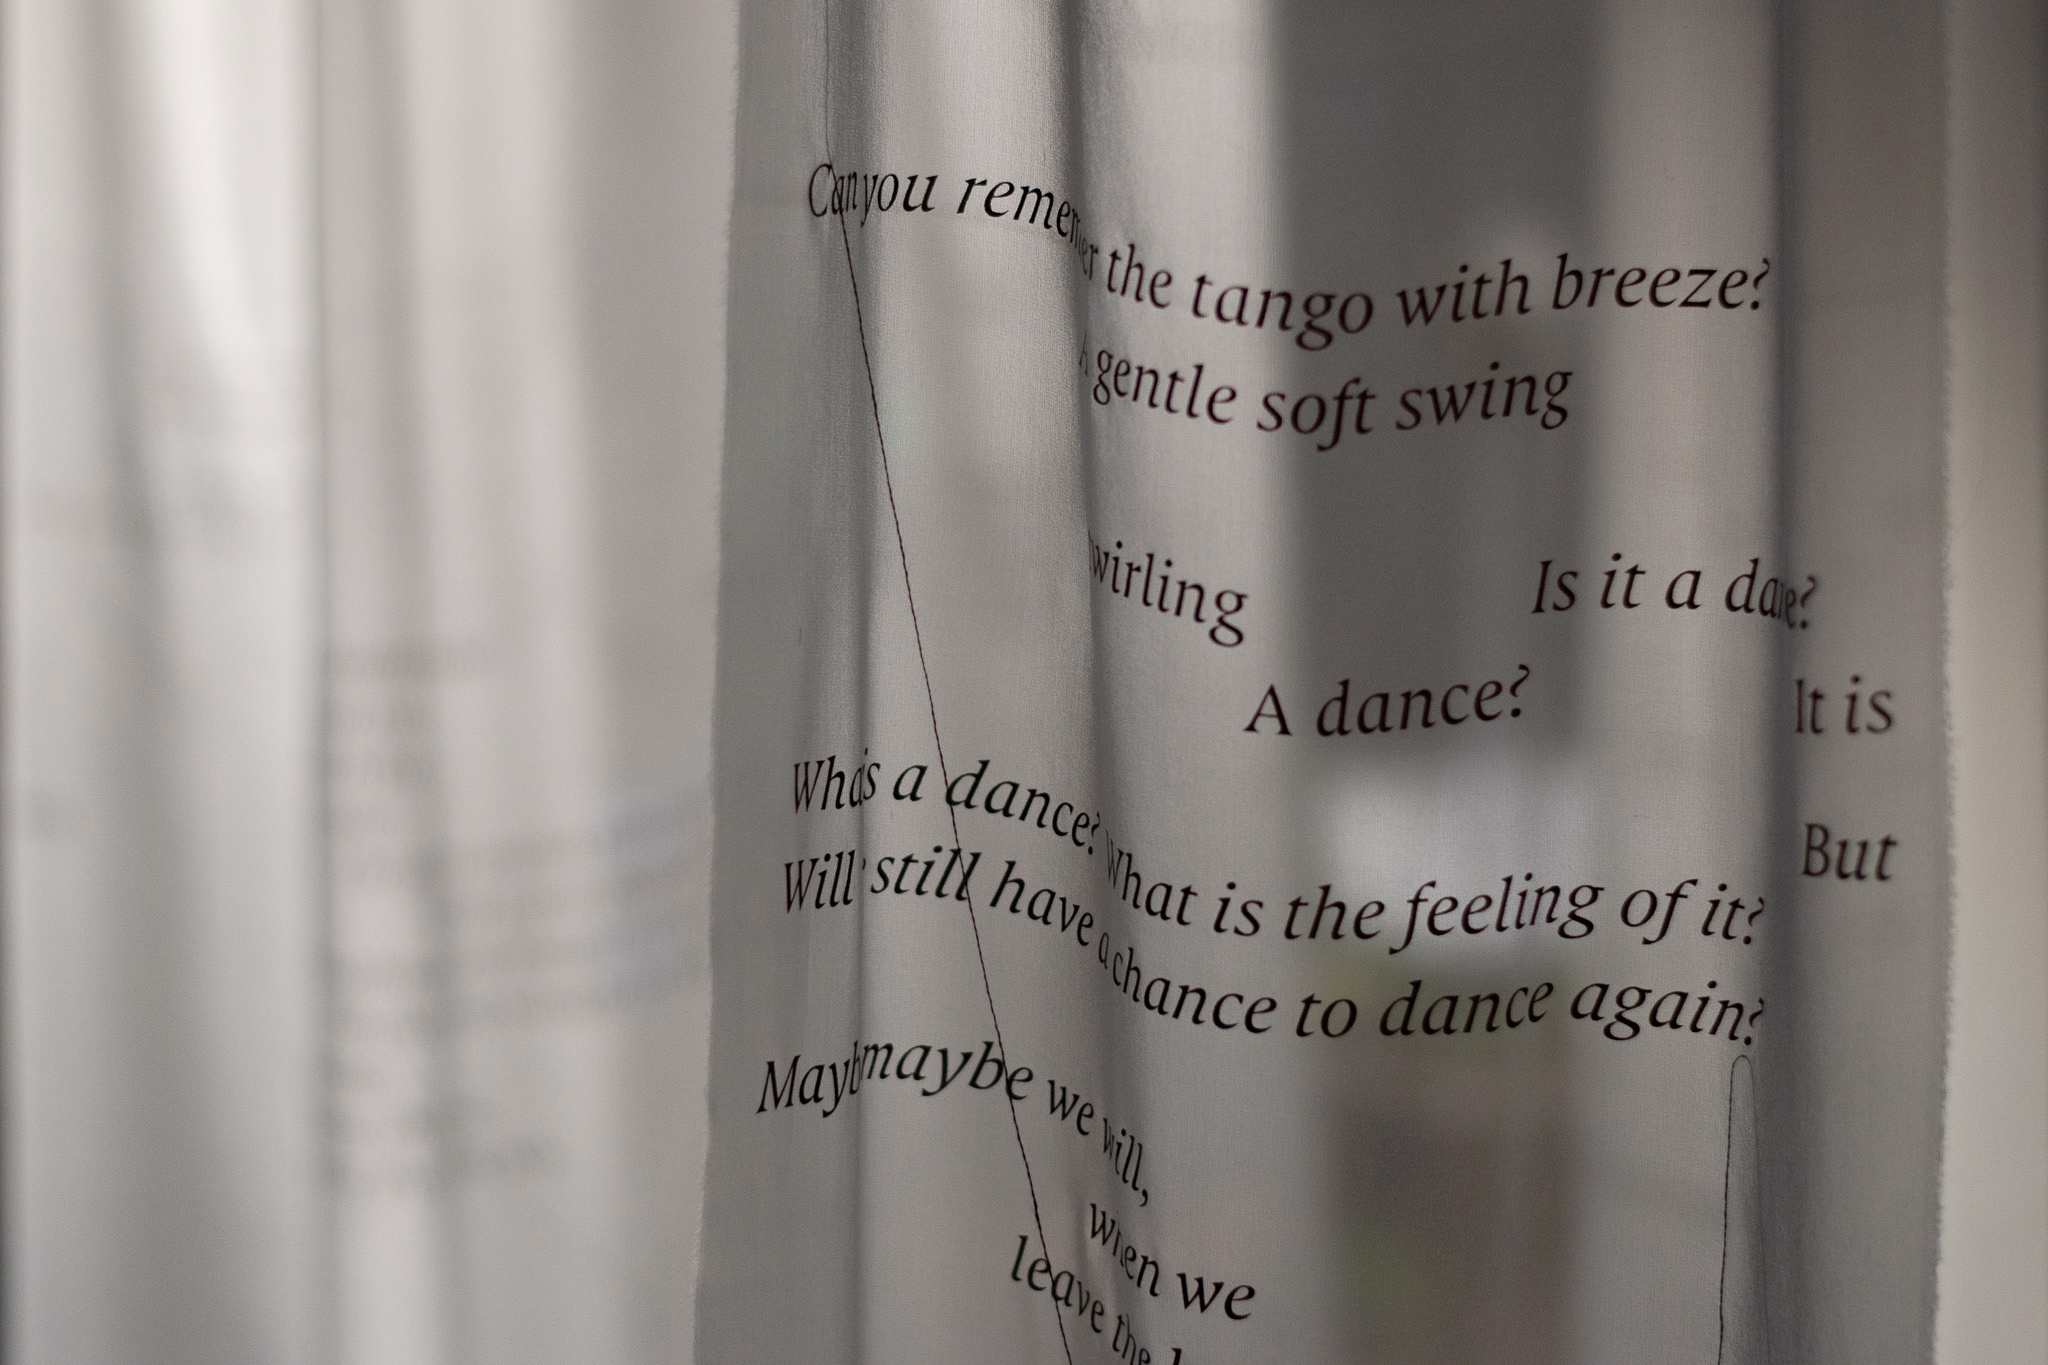 Can you remember the tango with breeze?
A gentle soft swing
wirling
Is it a dance?
A dance?
It is
What is a dance? What is the feeling of it?
But
Will still have a chance to dance again?
Maybe maybe we will,
when we
leave the